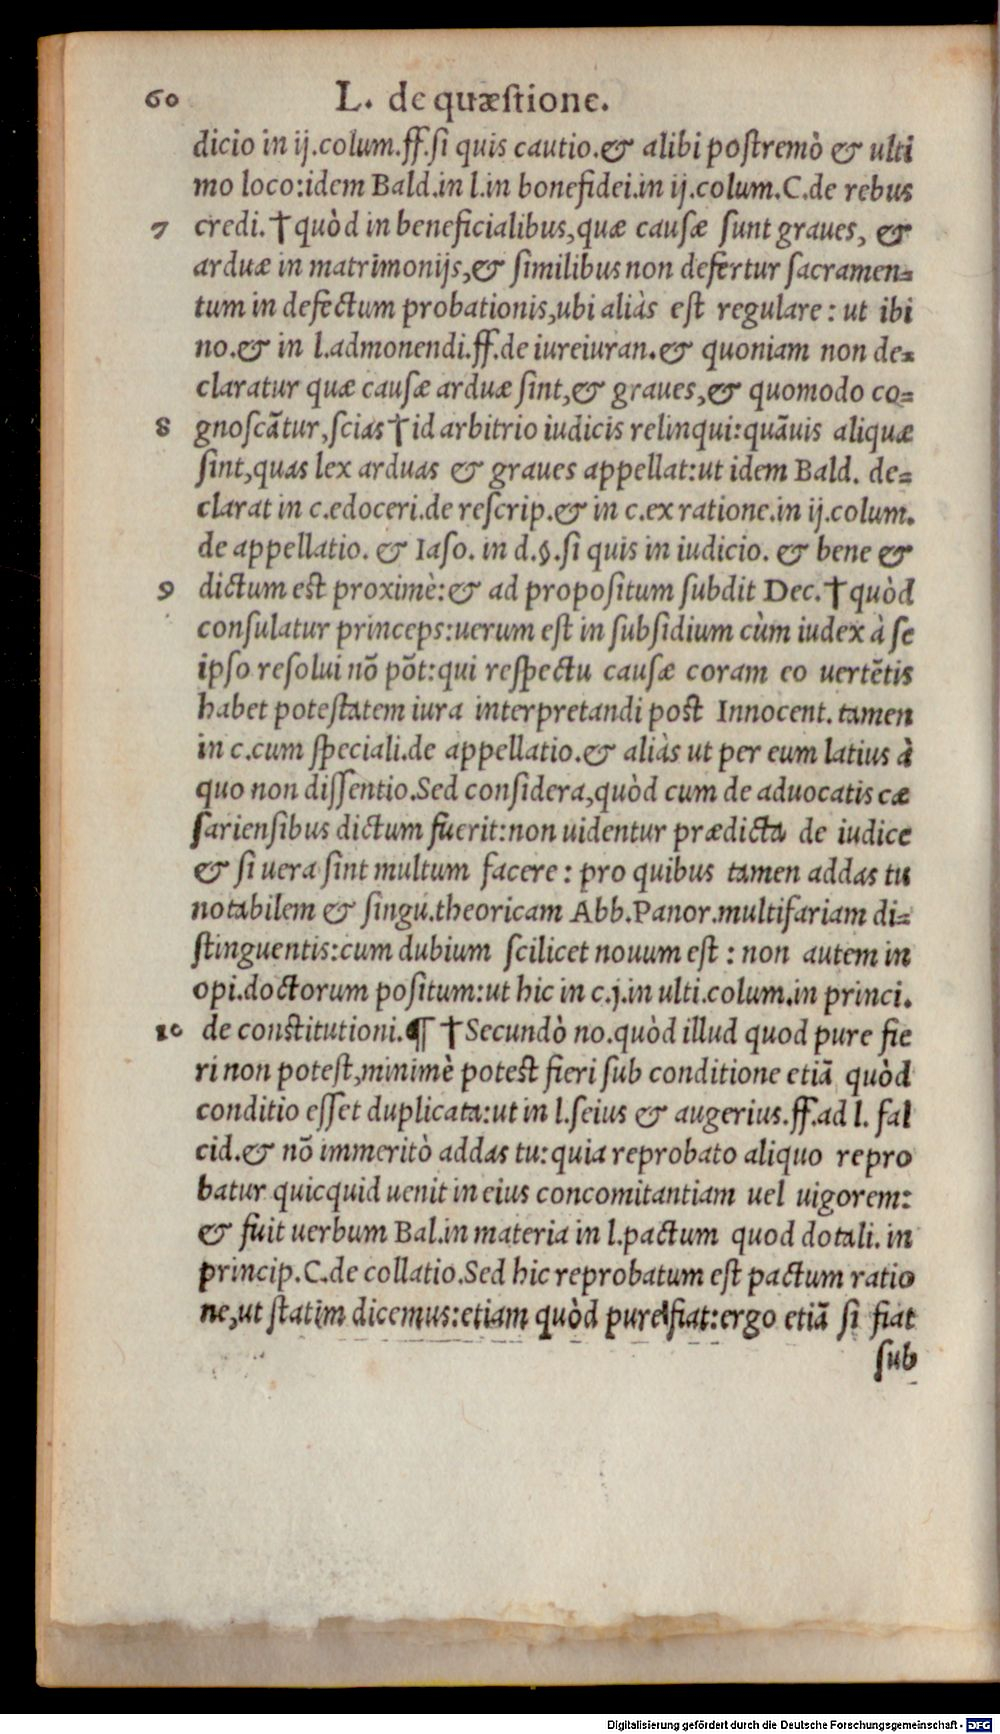 60 L. de quæstione.
dicio in ij.colum.ff.si quis cautio.& alibi postremò & ulti
mo loco:idem Bald.in l.in bonefidei.in ij.colum.C.de rebus
7 credi.† quòd in beneficialibus,quæ causæ sunt graues, &
arduæ in matrimonijs,& similibus non defertur sacramen=
tum in defectum probationis,ubi aliàs est regulare: ut ibi
no.& in l.admonendi.ff.de iureiuran.& quoniam non de=
claratur quæ causæ arduæ sint,& graues,& quomodo co=
8 gnoscãtur,scias † id arbitrio iudicis relinqui: quãuis aliquæ
sint,quas lex arduas & graues appellat:ut idem Bald. de=
clarat in c.edoceri.de rescrip.& in c.ex ratione.in ij.colum.
de appellatio. & Iaso. in d.§.si quis in iudicio. & bene &
9 dictum est proximè:& ad propositum subdit Dec.† quòd
consulatur princeps:uerum est in subsidium cùm iudex à se
ipso resolui nõ põt:qui respectu causæ coram eo uertẽtis
habet potestatem iura interpretandi post Innocent. tamen
in c.cum speciali.de appellatio.& aliàs ut per eum latius à
quo non dissentio.Sed considera,quòd cum de aduocatis cæ
sariensibus dictum fuerit:non uidentur prædicta de iudice
& si uera sint multum facere: pro quibus tamen addas tu
notabilem & singu.theoricam Abb.Panor.multifariam di=
stinguentis:cum dubium scilicet nouum est: non autem in
opi.doctorum positum:ut hic in c.j.in ulti.colum.in princi.
10 de constitutioni.¶ † Secundò no.quòd illud quod pure fie
ri non potest,minimè potest fieri sub conditione etiã quòd
conditio esset duplicata:ut in l.seius & augerius.ff.ad l. fal
cid.& nõ immeritò addas tu: quia reprobato aliquo repro
batur quicquid uenit in eius concomitantiam uel uigorem:
& fuit uerbum Bal.in materia in l.pactum quod dotali. in
princip.C.de collatio.Sed hic reprobatum est pactum ratio
ne,ut statim dicemus:etiam quòd pure fiat:ergo etiã si fiat
sub
Digitalisierung gefördert durch die Deutsche Forschungsgemeinschaft - DFG